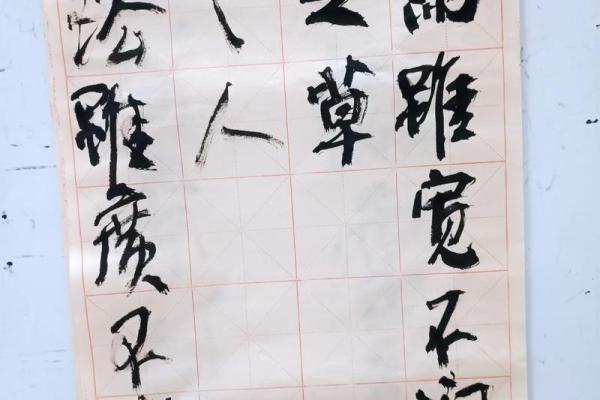 雨雖宽不润
之草
人
法雖廣不